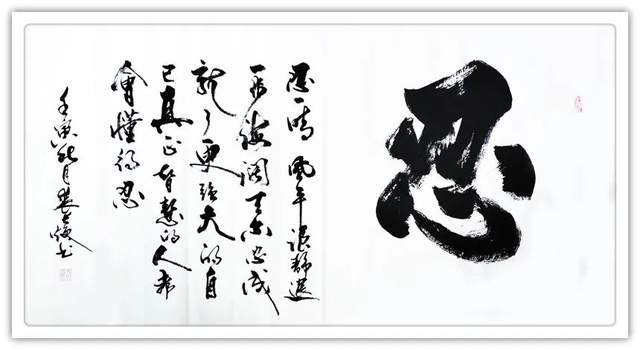 忍
忍一時風平浪静退
一步海阔天空忍成
就了更强大的自
己真正智慧的人都
會懂得忍
壬寅秋月